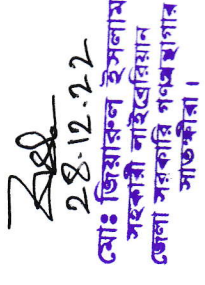 28.12.22
মো: জিয়ারুল ইসলাম
সহকারী লাইব্রেরিয়ান
জেলা সরকারি গণগ্রন্থাগার
সাতক্ষীরা।